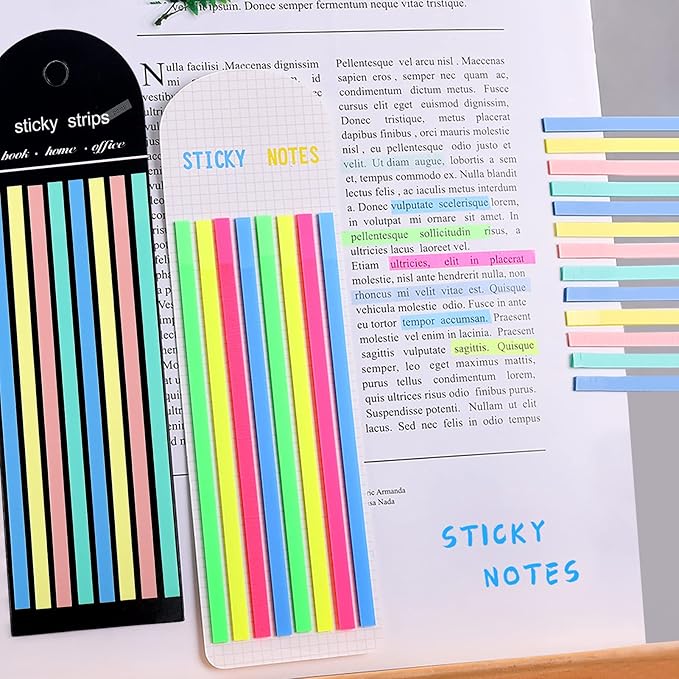 sticky strips
book · home · office
STICKY NOTES
Donec semper fermentum neque vitae tristique.
Nulla facilisi .Maecenas dignissim
Pellentesque vel arcu nisl . Maecenas
sapien eros , semper nec quam ac,
condimentum dictum metus. Fusce
cursus elit eget euismod dignissim.
Donec tristique, metus placerat
dapibus finibus , orci mauris molestie
nisl , eu pellentesque odio justo et
velit. Ut diam augue, lobortis a sem
et, tempus commodo ex. Curabitur
lobortis felis , ac iaculis metus interdum
a. Donec vulputate scelerisque lorem,
in volutpat mi ornare sit amet. In
pellentesque sollicitudin risus, a
ultricies lacus laoreet vel.
Etiam ultricies, elit in placerat
molestie, nisl ante hendrerit nulla, non
rhoncus mi velit vitae est. Quisque
vehicula molestie odio. Fusce in ante
eu tortor tempor accumsan. Praesent
molestie vel enim in lacinia. Praesent
sagittis vulputate sagittis. Quisque
semper, leo eget maximus mattis,
purus tellus condimentum lorem,
quis ultrices risus odio finibus purus.
Suspendisse potenti. Nullam ut elit
lacus. Sed nec felis in odio tempus
Armanda
Nada
STICKY
NOTES